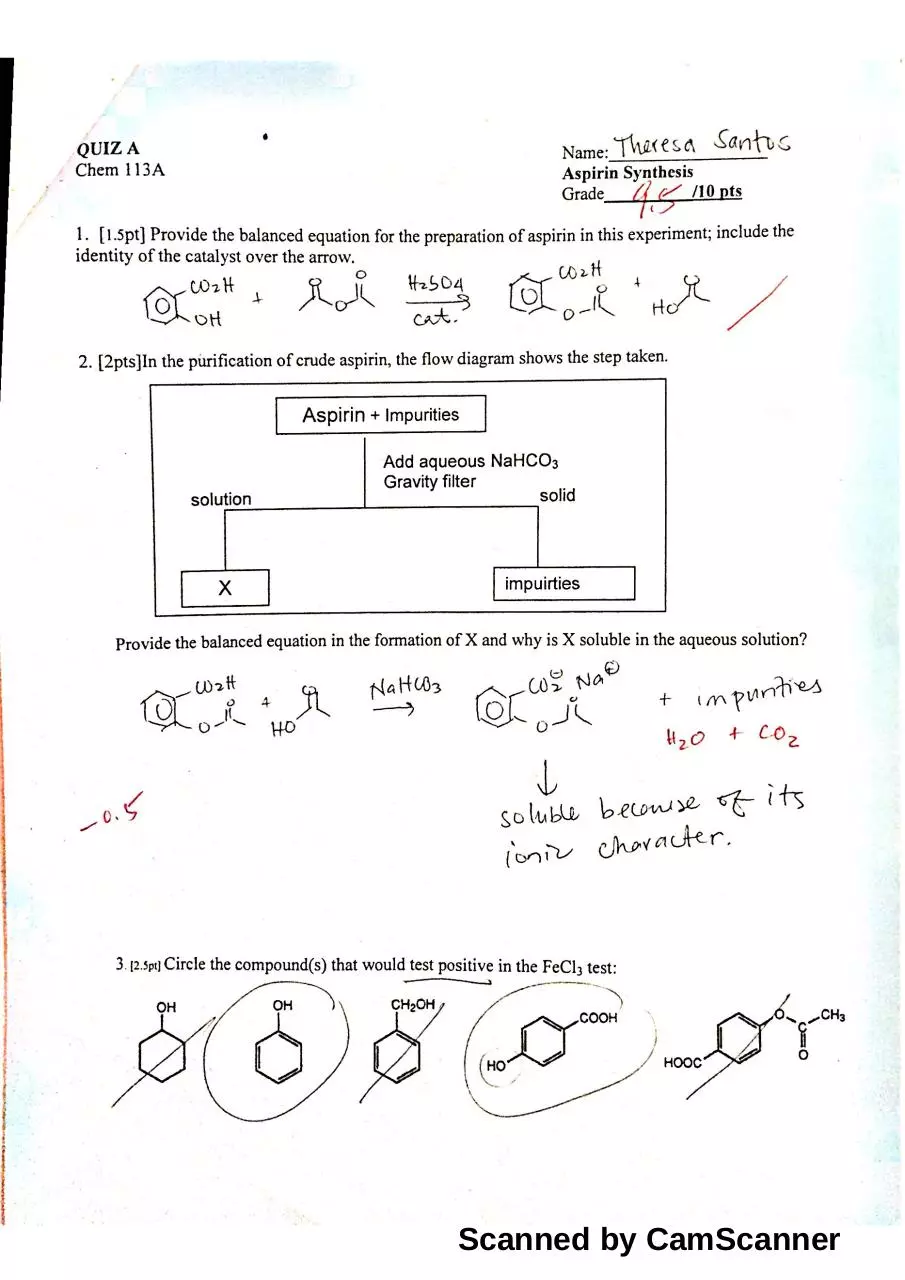 QUIZ A
Chem 113A
Name: Theresa Santos
Aspirin Synthesis
Grade 9.5 /10 pts
1. [1.5pt] Provide the balanced equation for the preparation of aspirin in this experiment; include the
identity of the catalyst over the arrow.
CO2H OH + O O O H2SO4 cat. CO2H O O + O HO
2. [2pts]In the purification of crude aspirin, the flow diagram shows the step taken.
Aspirin + Impurities
Add aqueous NaHCO3
Gravity filter
solution
solid
X
impuirties
Provide the balanced equation in the formation of X and why is X soluble in the aqueous solution?
CO2H O O + O HO NaHCO3 CO2⊖ Na⊕ O O + impurities
H2O + CO2
-0.5
soluble because of its
ionic character.
3. [2.5pt] Circle the compound(s) that would test positive in the FeCl3 test:
OH OH CH2OH COOH HO O CH3 C O HOOC
Scanned by CamScanner